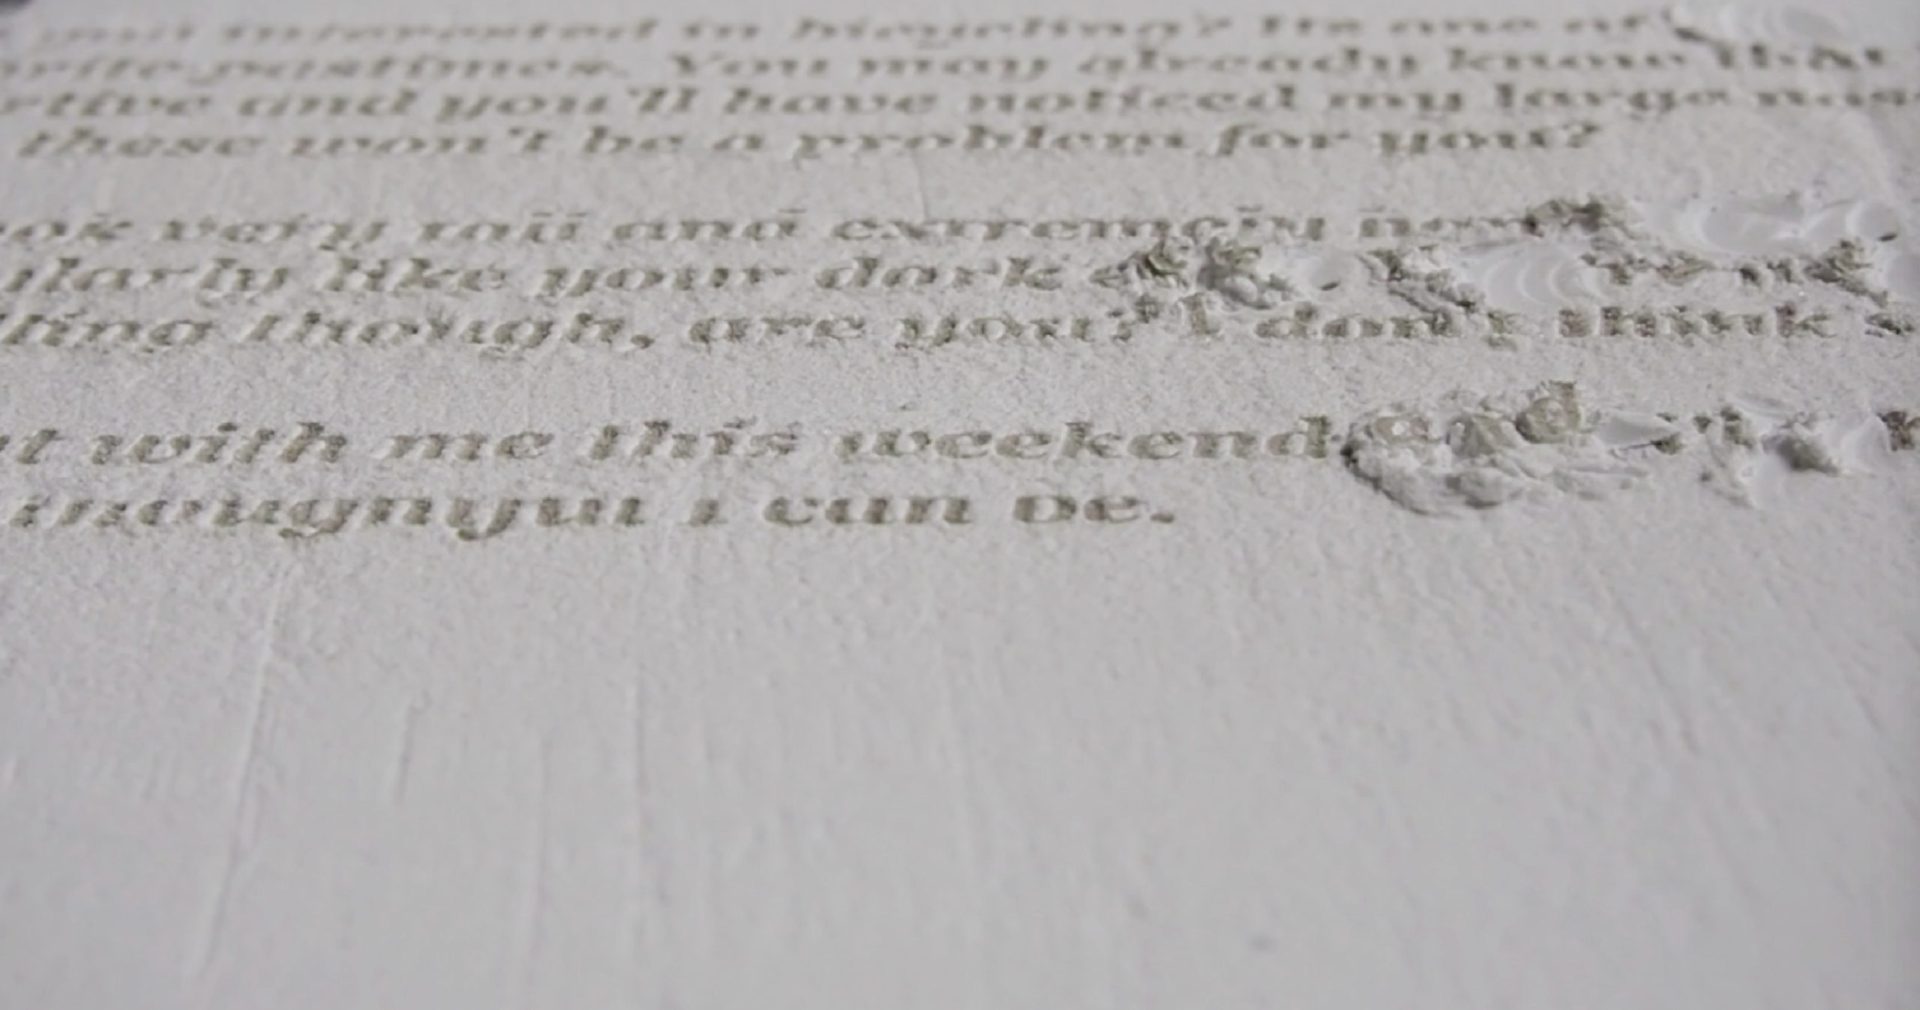 you interested in bicycling? Its one of
rite pastimes. You may already know that
rtive and you'll have noticed my large nos
these won't be a problem for you?
ok very tall and extremely
ularly like your dark
ling though, are you? I don't think
t with me this weekend and
thoughtful I can be.